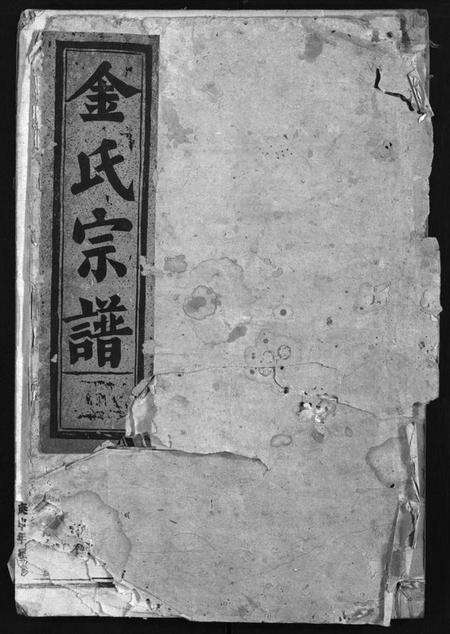 金氏宗譜